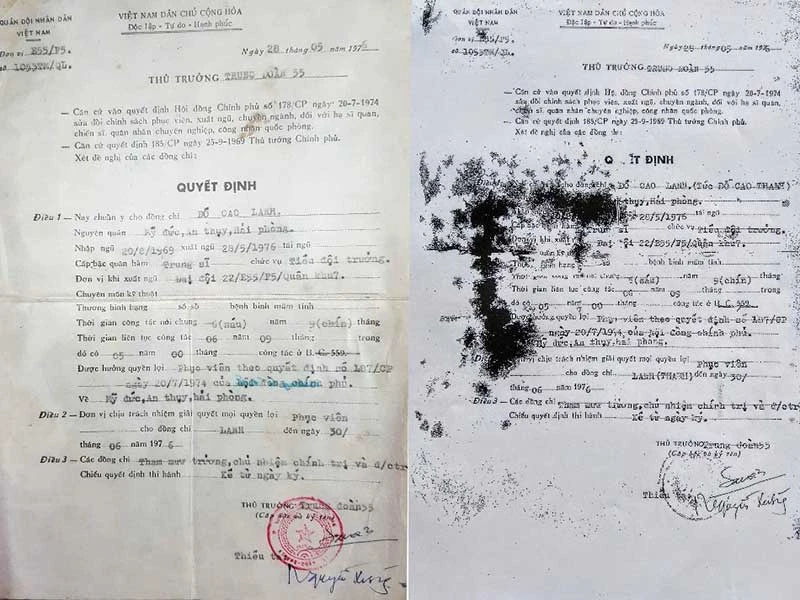 QUÂN ĐỘI NHÂN DÂN
VIỆT NAM
Đơn vị E55/F5.
số 1093TM/QL.
VIỆT NAM DÂN CHỦ CỘNG HÒA
Độc lập - Tự do - Hạnh phúc
Ngày 28 tháng 05 năm 1976
THỦ TRƯỞNG TRUNG ĐOÀN 55
— Căn cứ vào quyết định Hội đồng Chính phủ số 178/CP ngày 20-7-1974
sửa đổi chính sách phục viên, xuất ngũ, chuyển ngành, đối với hạ sĩ quan,
chiến sĩ, quân nhân chuyên nghiệp, công nhân quốc phòng.
— Căn cứ quyết định 185/CP ngày 25-9-1969 Thủ tướng Chính phủ.
Xét đề nghị của các đồng chí:
QUYẾT ĐỊNH
Điều 1 — Nay chuẩn y cho đồng chí ĐỖ CAO LANH.
Nguyên quán Kỳ đức, An thụy, Hải phòng.
Nhập ngũ 20/8/1969 xuất ngũ 28/5/1976 tái ngũ
Cấp bậc quân hàm Trung sĩ chức vụ Tiểu đội trưởng.
Đơn vị khi xuất ngũ Đại đội 22/E55/F5/Quân khu7.
Chuyên môn kỹ thuật
Thương binh hạng số sổ bệnh binh mãn tính
Thời gian công tác nói chung 6(sáu) năm 9(chín) tháng
Thời gian liên tục công tác 06 năm 09 tháng trong
đó có 05 năm 00 tháng công tác ở B.C.559.
Được hưởng quyền lợi Phục viên theo quyết định số 187/CP
ngày 20/7/1974 của hội đồng chính phủ.
Về Kỳ đức, An thụy, hải phòng.
Điều 2 — Đơn vị chịu trách nhiệm giải quyết mọi quyền lợi Phục viên
cho đồng chí LANH đến ngày 30/
tháng 06 năm 1976
Điều 3 — Các đồng chí Tham mưu trưởng, chủ nhiệm chính trị và đ/ctr
Chiếu quyết định thi hành Kể từ ngày ký.
THỦ TRƯỞNG Trung đoàn55
(Cấp bậc và ký tên)
Thiếu tá
Nguyễn
QUÂN ĐỘI NHÂN DÂN
VIỆT NAM
Đơn vị E55/F5.
số 1093TM/QL.
VIỆT NAM DÂN CHỦ CỘNG HÒA
Độc lập - Tự do - Hạnh phúc
Ngày 28 tháng 05 năm 1976
THỦ TRƯỞNG TRUNG ĐOÀN 55
Căn cứ vào quyết định Hội đồng Chính phủ số 178/CP ngày 20-7-1974
sửa đổi chính sách phục viên, xuất ngũ, chuyển ngành, đối với hạ sĩ quan,
chiến sĩ, quân nhân chuyên nghiệp, công nhân quốc phòng.
Căn cứ quyết định 185/CP ngày 25-9-1969 Thủ tướng Chính phủ.
Xét đề nghị của các đồng chí:
ĐỊNH
cho đồng chí ĐỖ CAO LANH.(Tức ĐỖ CAO THANH)
thụy, Hải phòng.
28/5/1976 tái ngũ
chức vụ Tiểu đội trưởng.
Đại đội 22/E55/F5/Quân khu7.
bệnh binh mãn tính
năm 9(chín) tháng
Thời gian liên tục công tác 06 năm 09 tháng trong
05 năm 00 tháng công tác ở B.C.559.
hưởng quyền lợi Phục viên theo quyết định số 187/CP
ngày 20/7/1974 của Hội đồng chính phủ.
Kỳ đức, An thụy, hải phòng.
chịu trách nhiệm giải quyết mọi quyền lợi Phục viên
LANH(THANH) đến ngày 30/
tháng 06 năm 1976
Điều 3 — Các đồng chí Tham mưu trưởng, chủ nhiệm chính trị và đ/ctr
Chiếu quyết định thi hành Kể từ ngày ký.
THỦ TRƯỞNG Trung đoàn55
(Cấp bậc và ký tên)
Thiếu tá
Nguyễn